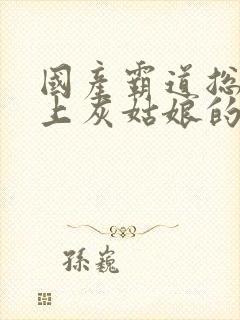 國產霸道總
上灰姑娘的
孫巍